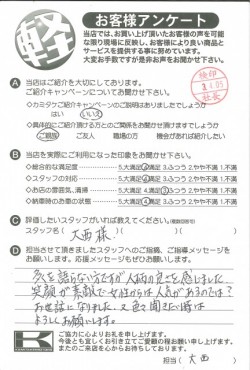 軽
お客様アンケート
当店では、お買い上げ頂いたお客様の声を可能
な限り現場に反映し、お客様により良い商品と
サービスを提供する事に努めています。
大変お手数ですが是非お声をお聞かせ下さい。
検印
社長
A 当店はご紹介を大切にしてあります。
ご紹介キャンペーンについてお聞かせ下さい。
◇カミタケご紹介キャンペーンのご説明はありましたでしょうか
はい いいえ
◇具体的にご紹介頂ける方とのご関係をお聞かせ頂けますでしょうか
ご親戚 ご友人 職場の方 機会があれば紹介したい
B 当店を実際にご利用になった印象をお聞かせ下さい。
◇総合的な満足度 5.大満足 4.満足 3.ふつう 2.やや不満 1.不満
◇スタッフの対応 5.大満足 4.満足 3.ふつう 2.やや不満 1.不満
◇お店の雰囲気、清掃 5.大満足 4.満足 3.ふつう 2.やや不満 1.不満
◇納車時のお車の状態 5.大満足 4.満足 3.ふつう 2.やや不満 1.不満
C 評価したいスタッフがいれば教えてください。(複数回答可)
スタッフ名( 大西様. )
D 担当させて頂きましたスタッフへのご指摘、ご指導メッセージを
お願いします。応援メッセージもぜひお願いします！
多くを語らない方ですが人柄の良さを感じました
笑顔が素敵で女性からは人気があるのでは？
お世話になりました。又色々聞きたい時は
よろしくお願いします。
ご協力に心よりお礼を申し上げます。
今後とも宜しくお引き立てご愛顧の程お願い申し上げます。
またのご来店を心からお待ちしております。
担当( 大西 )